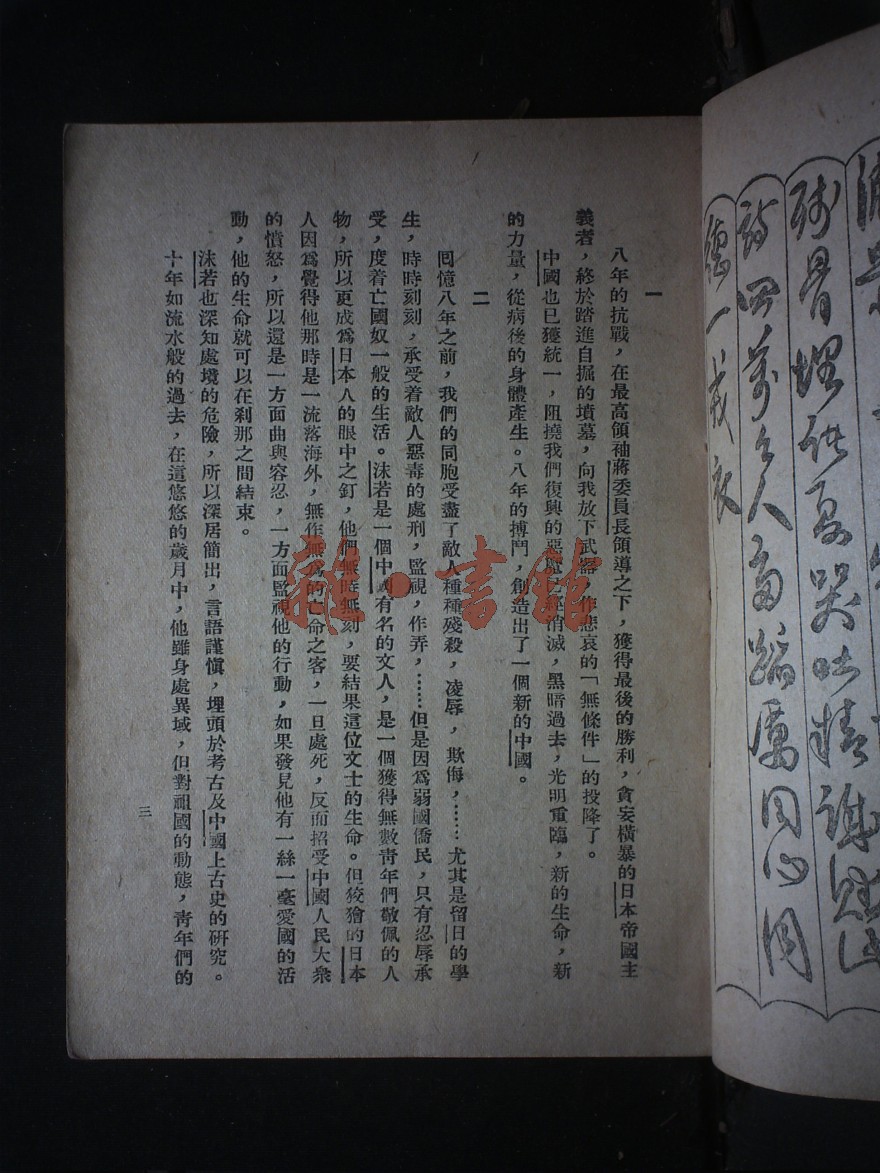 一
八年的抗戰，在最高領袖蔣委員長領導之下，獲得最後的勝利，貪妄橫暴的日本帝國主
義者，終於踏進自掘的墳墓，向我放下武器，作悲哀的「無條件」的投降了。
中國也已獲統一，阻撓我們復興的惡魔已經消滅，黑暗過去，光明重臨，新的生命，新
的力量，從病後的身體產生。八年的搏鬥，創造出了一個新的中國。
二
囘憶八年之前，我們的同胞受盡了敵人種種殘殺，凌辱，欺侮，……尤其是留日的學
生，時時刻刻，承受着敵人惡毒的處刑，監視，作弄，……但是因爲弱國僑民，只有忍辱承
受，度着亡國奴一般的生活。沫若是一個中國有名的文人，是一個獲得無數靑年們敬佩的人
物，所以更成爲日本人的眼中之釘，他們無時無刻，要結果這位文士的生命。但狡獪的日本
人因爲覺得他那時是一流落海外，無作無爲的亡命之客，一旦處死，反而招受中國人民大衆
的憤怒，所以還是一方面曲與容忍，一方面監視他的行動，如果發見他有一絲一毫愛國的活
動，他的生命就可以在刹那之間結束。
沫若也深知處境的危險，所以深居簡出，言語謹愼，埋頭於考古及中國上古史的研究。
十年如流水般的過去，在這悠悠的歲月中，他雖身處異域，但對祖國的動態，靑年們的
三
殘骨埋諸夏哭吐精誠賦此
詩四萬萬人齊蹈厲同心同
德一戎衣
雜·書館